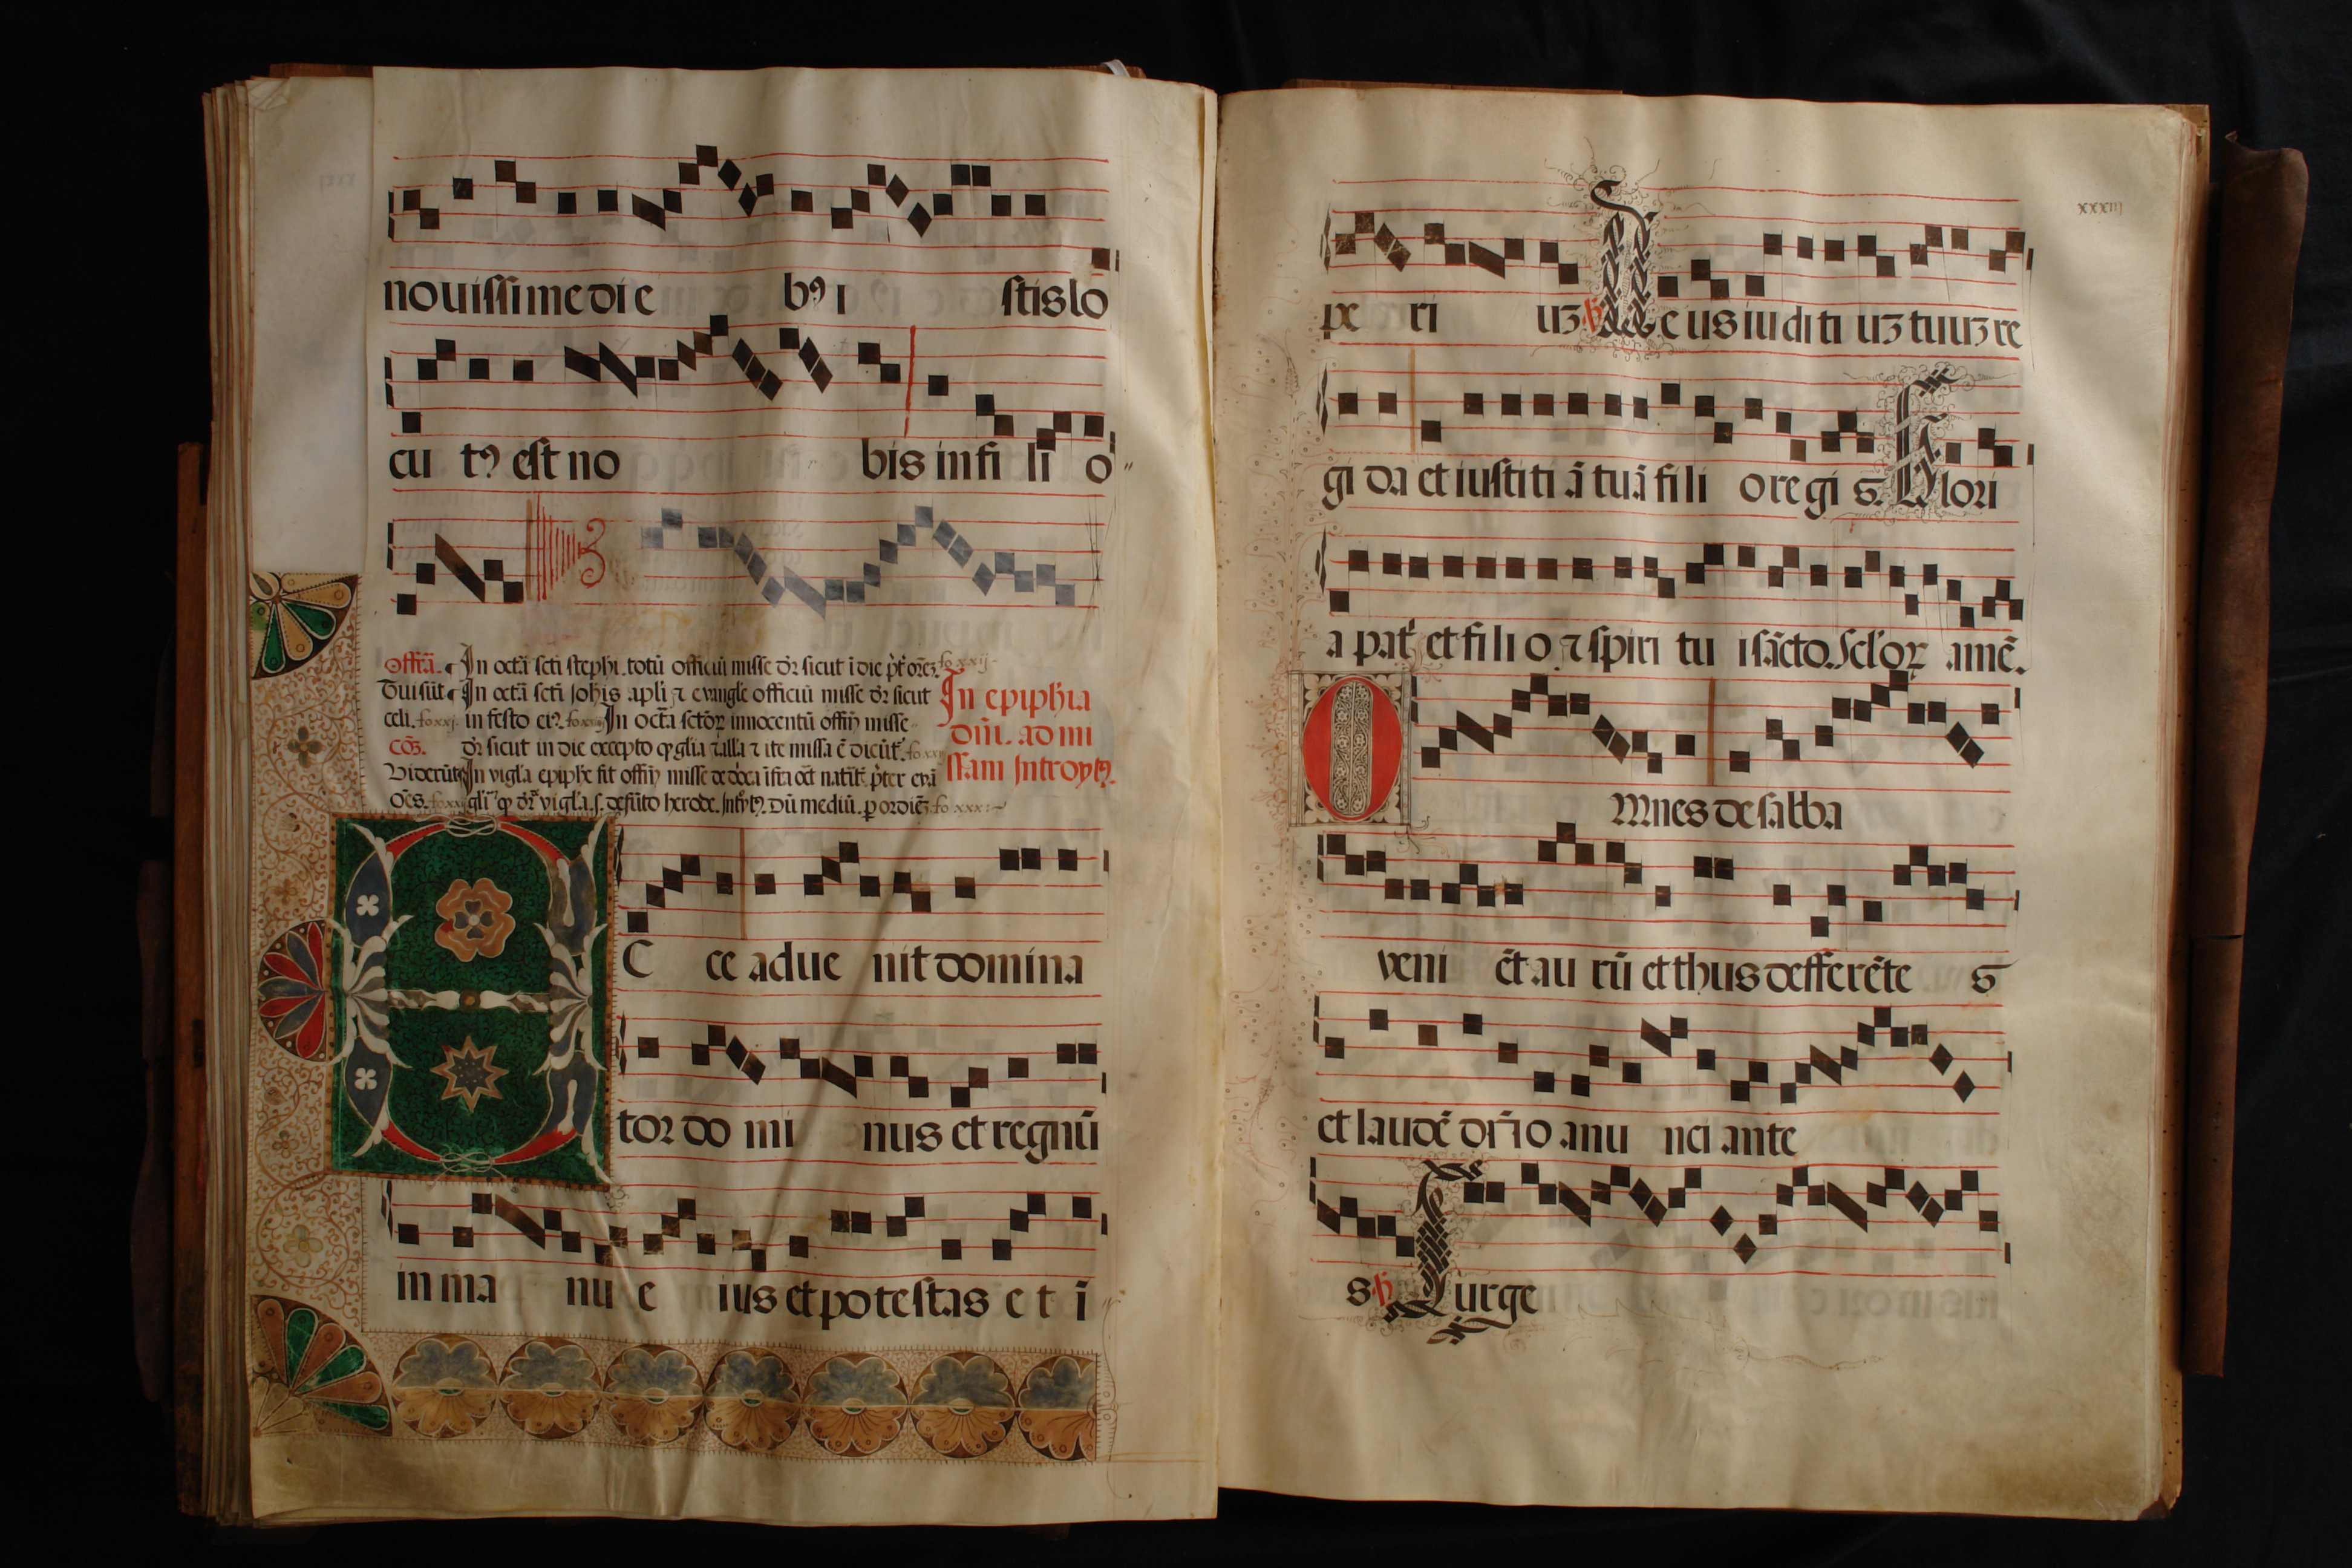 nouissime die b9 i stis lo
cu t9 est no bis in fi li o
Offm̃. In octã scti stephi. totũ officiũ misse dr̃ sicut ĩ die fo xxij
Tui sũt In octã scti Johis apli ⁊ evangle officiũ misse dr̃ sicut
celi. fo xxj. in festo ei9. In octa sctoꝝ innocentũ offiỹ misse
cõ. dr̃ sicut in die excepto ꝙ glia ⁊ alla ⁊ ite missa ẽ dicũt
Viderũt In vigla epiphe fit offiỹ misse de dõca ĩfra oct natit p̃ter evã
oẽs. vigla. s. defũto herode. Dũ mediũ. fo xxx
In epiphia
dñi. ad mi
ssam Introyt9.
E C ce adue nit domina
tor do mi nus et regnũ
in ma nu e ius et potestas e t ĩ
xxxiij
pe ri uʒ. Deus iuditi uʒ tuuʒ re
gi da et iustiti ã tuã fili o regi s. Glori
a pat̃ et fili o ⁊ spiri tu i sãcto. Sclꝛoꝝ amẽ.
O Mnes de sabba
veni ẽt au rũ et thus defferẽte s
et laudẽ dñ̃o anu nci ante
s. Surge